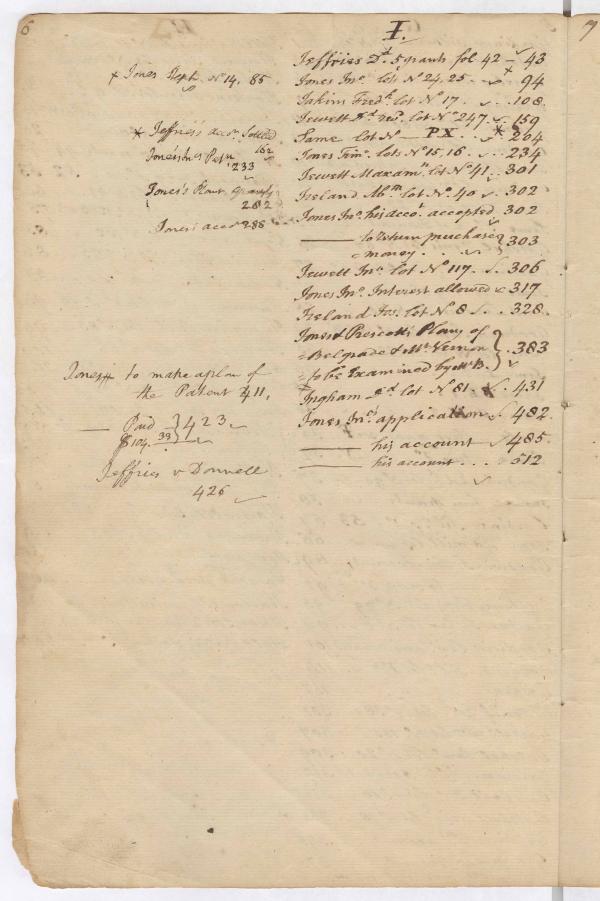 6
I.
Jeffries Dd. 5 grants fol 42 - 43
+ Jones Steph. No 14. 85
Jones Jno. lots No 24, 25 .. + 94
Jakins Fredk. lot No 17 . .. 108
Jewett lot No 247. 159
* Jeffries accot. Settled 162
Same lot N — PX . . * 204
Jones's Petn. 233
Jones Simn. lots No 15, 16 . .. 234
Jewett Maxamn. lot No 41 .. 301
Jones's Plan,
282
Ireland Abm. lot No. 40 . 302
Jones Jno. his accot. accepted 302
Jones's accot 288
—— to return purchase } 303
= money . . .
Jewett Jno. lot No 117. . 306
Jones Jno. Interest allowed 317
Ireland Jos. lot No 8 . . 328
Jones & Prescotts Plans of }
= Belgrade & Mt. Vernon } . 383
= to be Examined by Mr B. }
Jones to make a plan of
the Patent 411,
Ingham lot No 81 . . 431
— Paid } 423
$104. 33 }
Jones Jno's application . 482
—— his account 485
—— his account . . . 512
Jeffries v Donnell
426
7